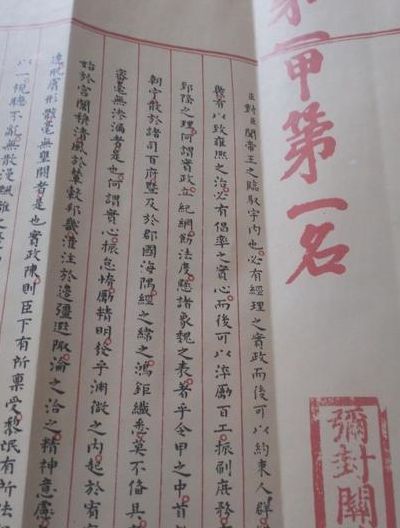 第一甲第一名
彌封關
臣對臣聞帝王之臨馭宇內也必有經理之實政而後可以約束人群
有以致雍熙之治必有倡率之實心而後可以淬勵百工振刷庶務
郅隆之理何謂實政立紀綱飭法度懸諸象魏之表著乎令甲之中首
朝宁散於諸司百府暨及於郡國海隅經之緯之鴻鉅纖悉莫不備具
密毫無滲漏者是也何謂實心振怠惰勵精明發乎淵微之內起於宥
始於宮闈穆清風於輦轂邦畿灌注於邊疆遐陬淪之洽之精神意慮
達肌膚形骸毫無壅閼者是也實政陳則臣下有所稟受黎氓有所法
以一視聽不亂無散漫飄離之